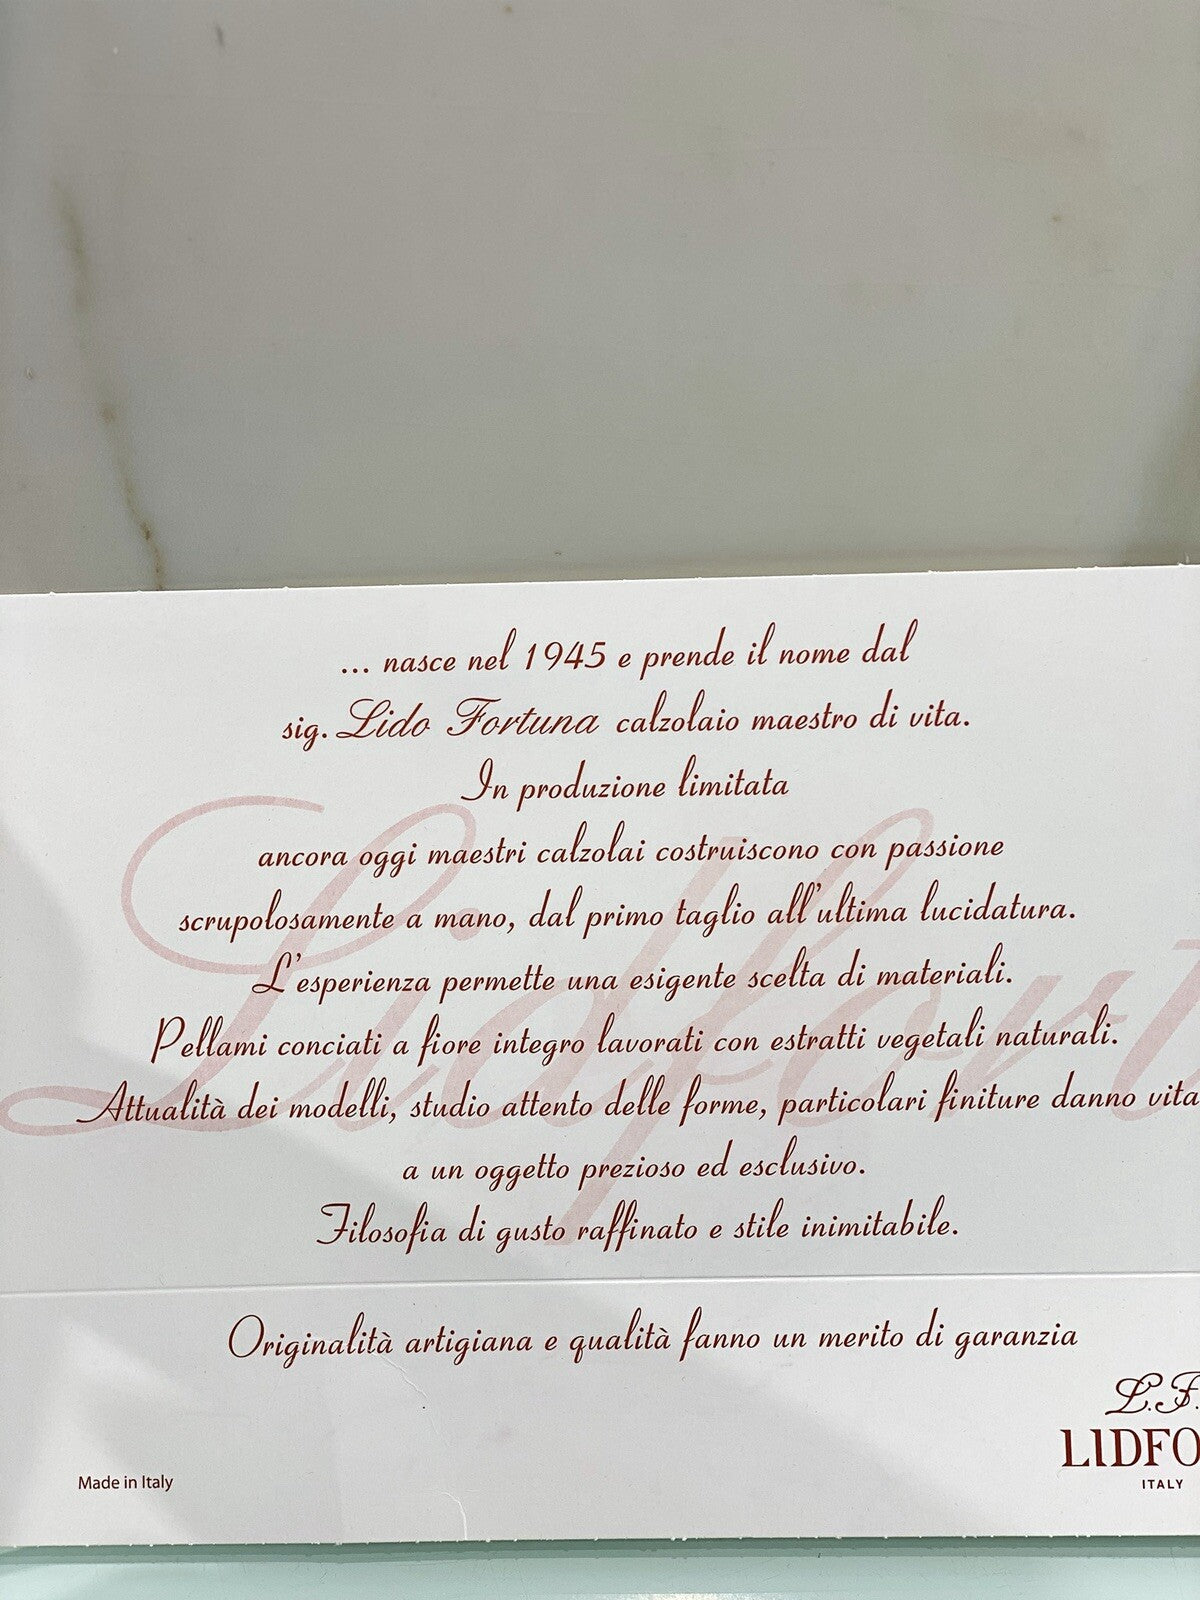 ... nasce nel 1945 e prende il nome dal
sig. Lido Fortuna calzolaio maestro di vita.
In produzione limitata
ancora oggi maestri calzolai costruiscono con passione
scrupolosamente a mano, dal primo taglio all'ultima lucidatura.
L'esperienza permette una esigente scelta di materiali.
Pellami conciati a fiore integro lavorati con estratti vegetali naturali.
Attualità dei modelli, studio attento delle forme, particolari finiture danno vita
a un oggetto prezioso ed esclusivo.
Filosofia di gusto raffinato e stile inimitabile.
Originalità artigiana e qualità fanno un merito di garanzia
L.F.
LIDFO
ITALY
Made in Italy